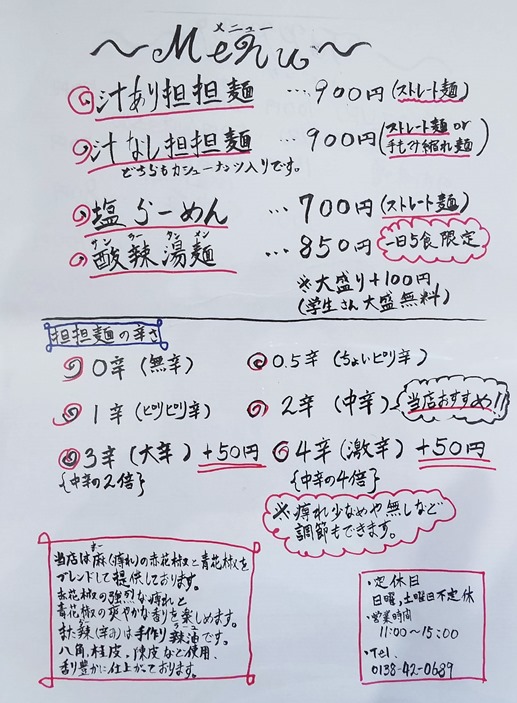 メニュー
〜Menu〜
汁あり担担麺 …900円(ストレート麺)
汁なし担担麺 …900円(ストレート麺or手もみ縮れ麺)
どちらもカシューナッツ入りです。
塩らーめん …700円(ストレート麺)
サンラータンメン
酸辣湯麺 …850円 一日5食限定
※大盛り+100円
(学生さん大盛無料)
担担麺の辛さ
0辛(無辛) 0.5辛(ちょいピリ辛)
1辛(ピリピリ辛) 2辛(中辛) 当店おすすめ!!
3辛(大辛)+50円 4辛(激辛)+50円
{中辛の2倍} {中辛の4倍}
※痺れ少なめや無しなど
調節もできます。
マー
当店は麻(痺れ)の赤花椒と青花椒を
ブレンドして提供しております。
赤花椒の強烈な痺れと
青花椒の爽やかな香りを楽しめます。
ラー ラーユ
また辣(辛み)は手作り辣油です。
八角、桂皮、陳皮など使用、
香り豊かに仕上がております。
・定休日
日曜,土曜日不定休
・営業時間
11:00〜15:00
・Tel
0138-42-0689